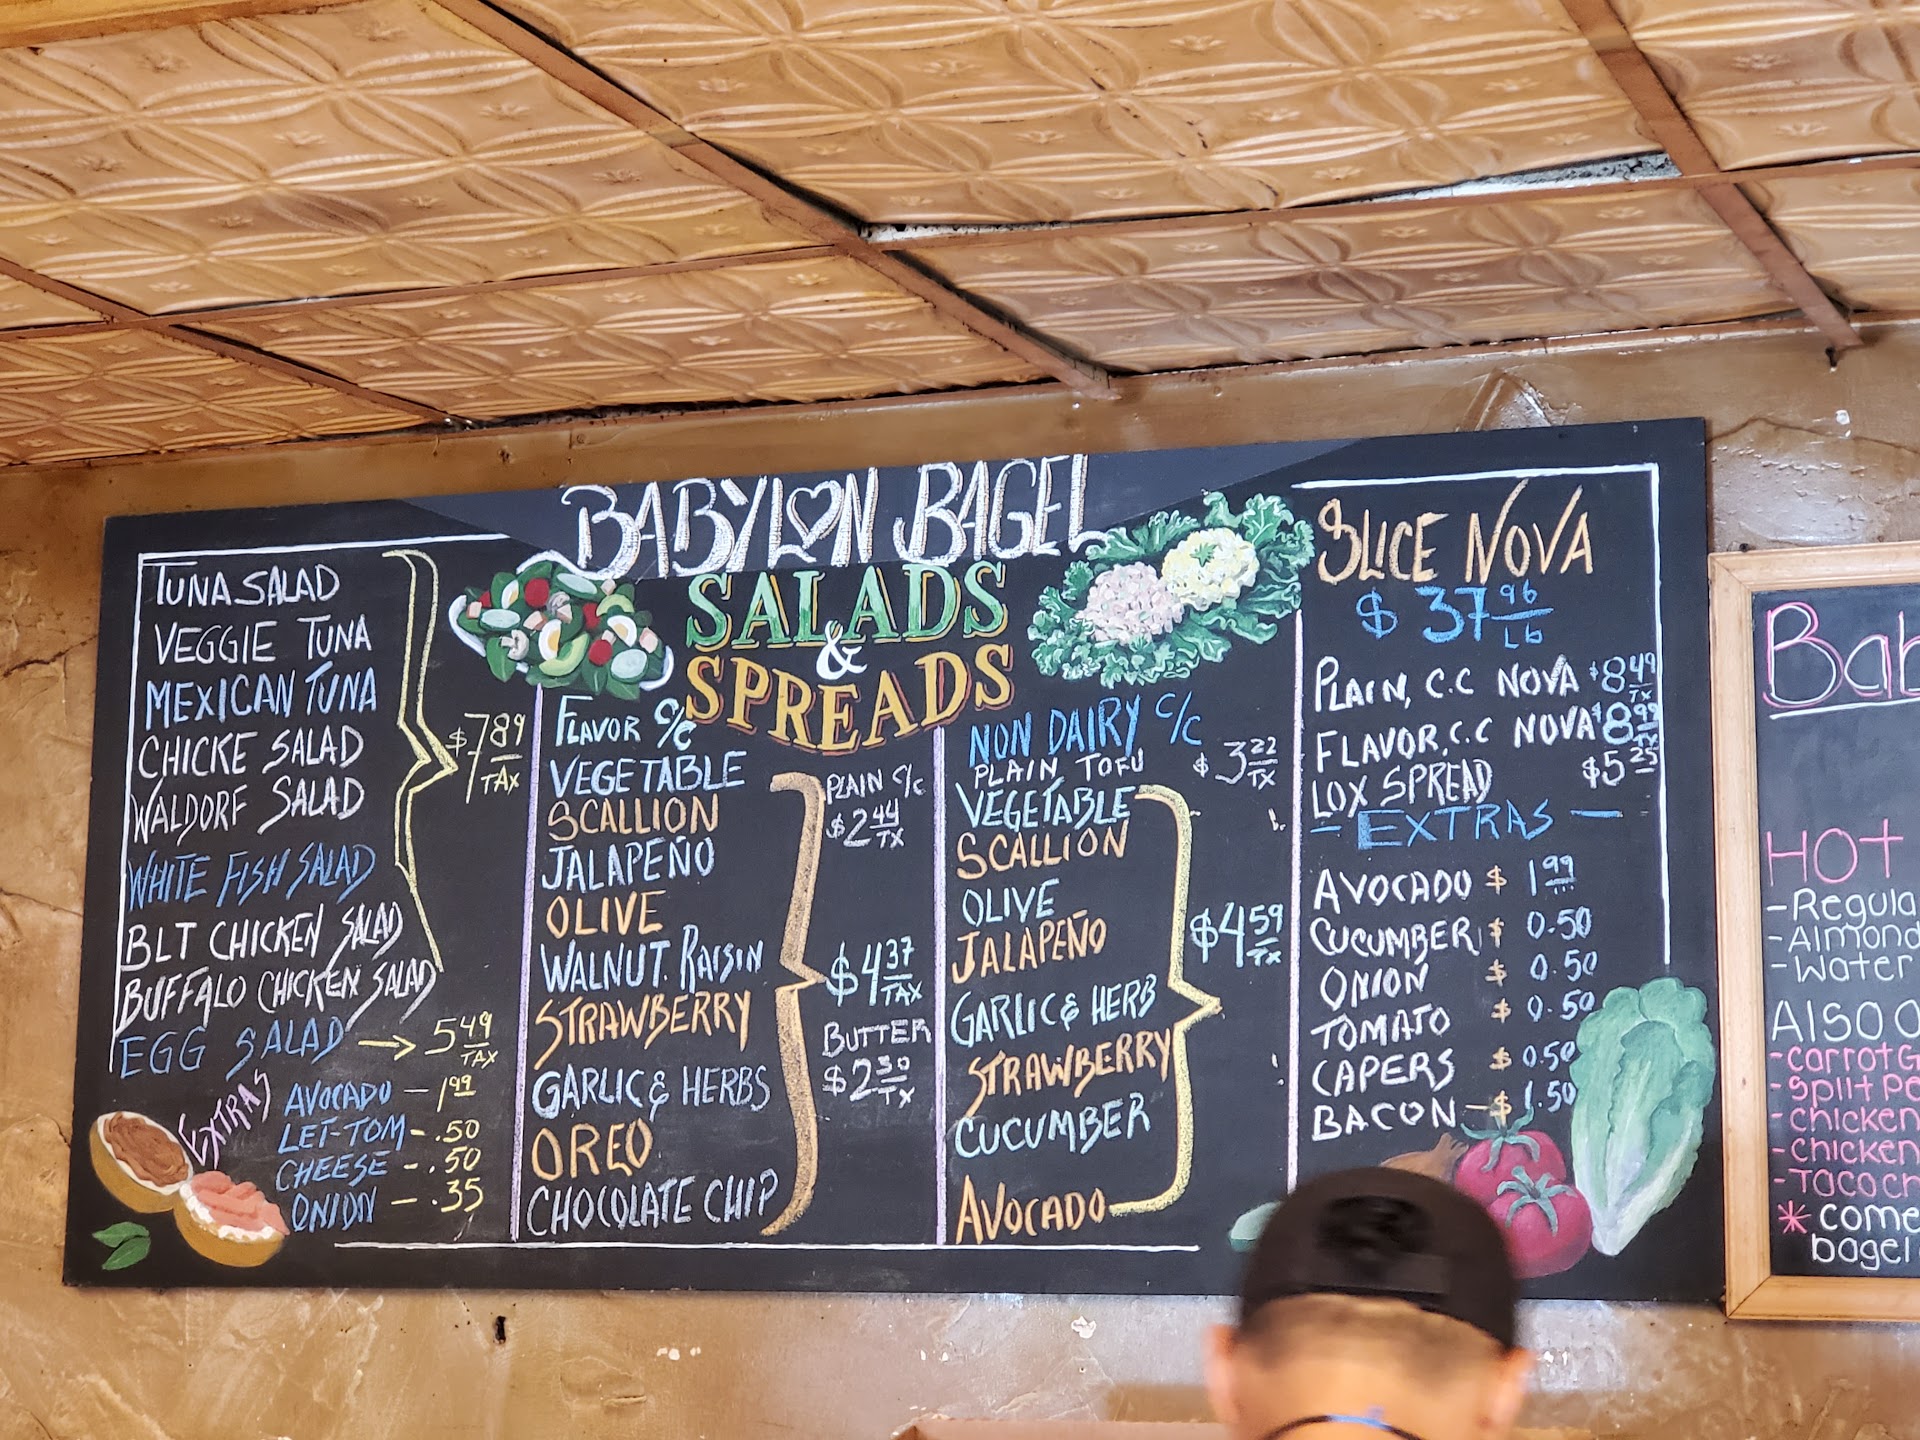 BABYLON BAGEL
SALADS
&
SPREADS
TUNA SALAD
VEGGIE TUNA
MEXICAN TUNA
CHICKE SALAD
WALDORF SALAD
WHITE FISH SALAD
BLT CHICKEN SALAD
BUFFALO CHICKEN SALAD
$7.89 TAX
EGG SALAD → 5.49 TAX
EXTRAS
AVOCADO — 1.99
LET-TOM - .50
CHEESE - .50
ONION - .35
FLAVOR C/C
VEGETABLE
SCALLION
JALAPEÑO
OLIVE
WALNUT. RAISIN
STRAWBERRY
GARLIC & HERBS
OREO
CHOCOLATE CHIP
PLAIN C/C
$2.44 TX
$4.37 TAX
BUTTER
$2.30 TX
NON DAIRY C/C
PLAIN TOFU $3.22 TX
VEGETABLE
SCALLION
OLIVE
JALAPEÑO
GARLIC & HERB
STRAWBERRY
CUCUMBER
AVOCADO
$4.59 TX
SLICE NOVA
$37.96 LB
PLAIN, C.C NOVA $8.49 TX
FLAVOR, C.C NOVA $8.99 TX
LOX SPREAD $5.25
- EXTRAS -
AVOCADO $1.99
CUCUMBER $0.50
ONION $0.50
TOMATO $0.50
CAPERS $0.50
BACON - $1.50
Bab
HOT
-Regula
-Almond
-Water
Also O
-carrot G
-split Pe
-chicken
-chicken
-Taco ch
* come
bagel